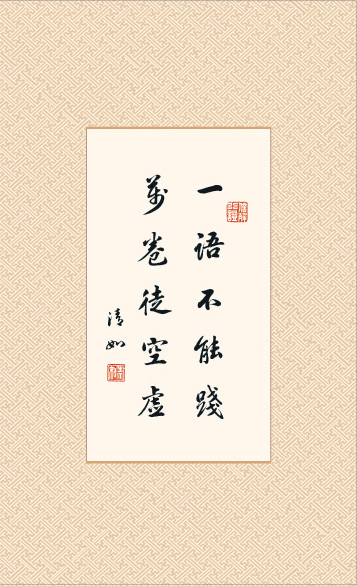 一语不能踐
萬卷徒空虚
清如